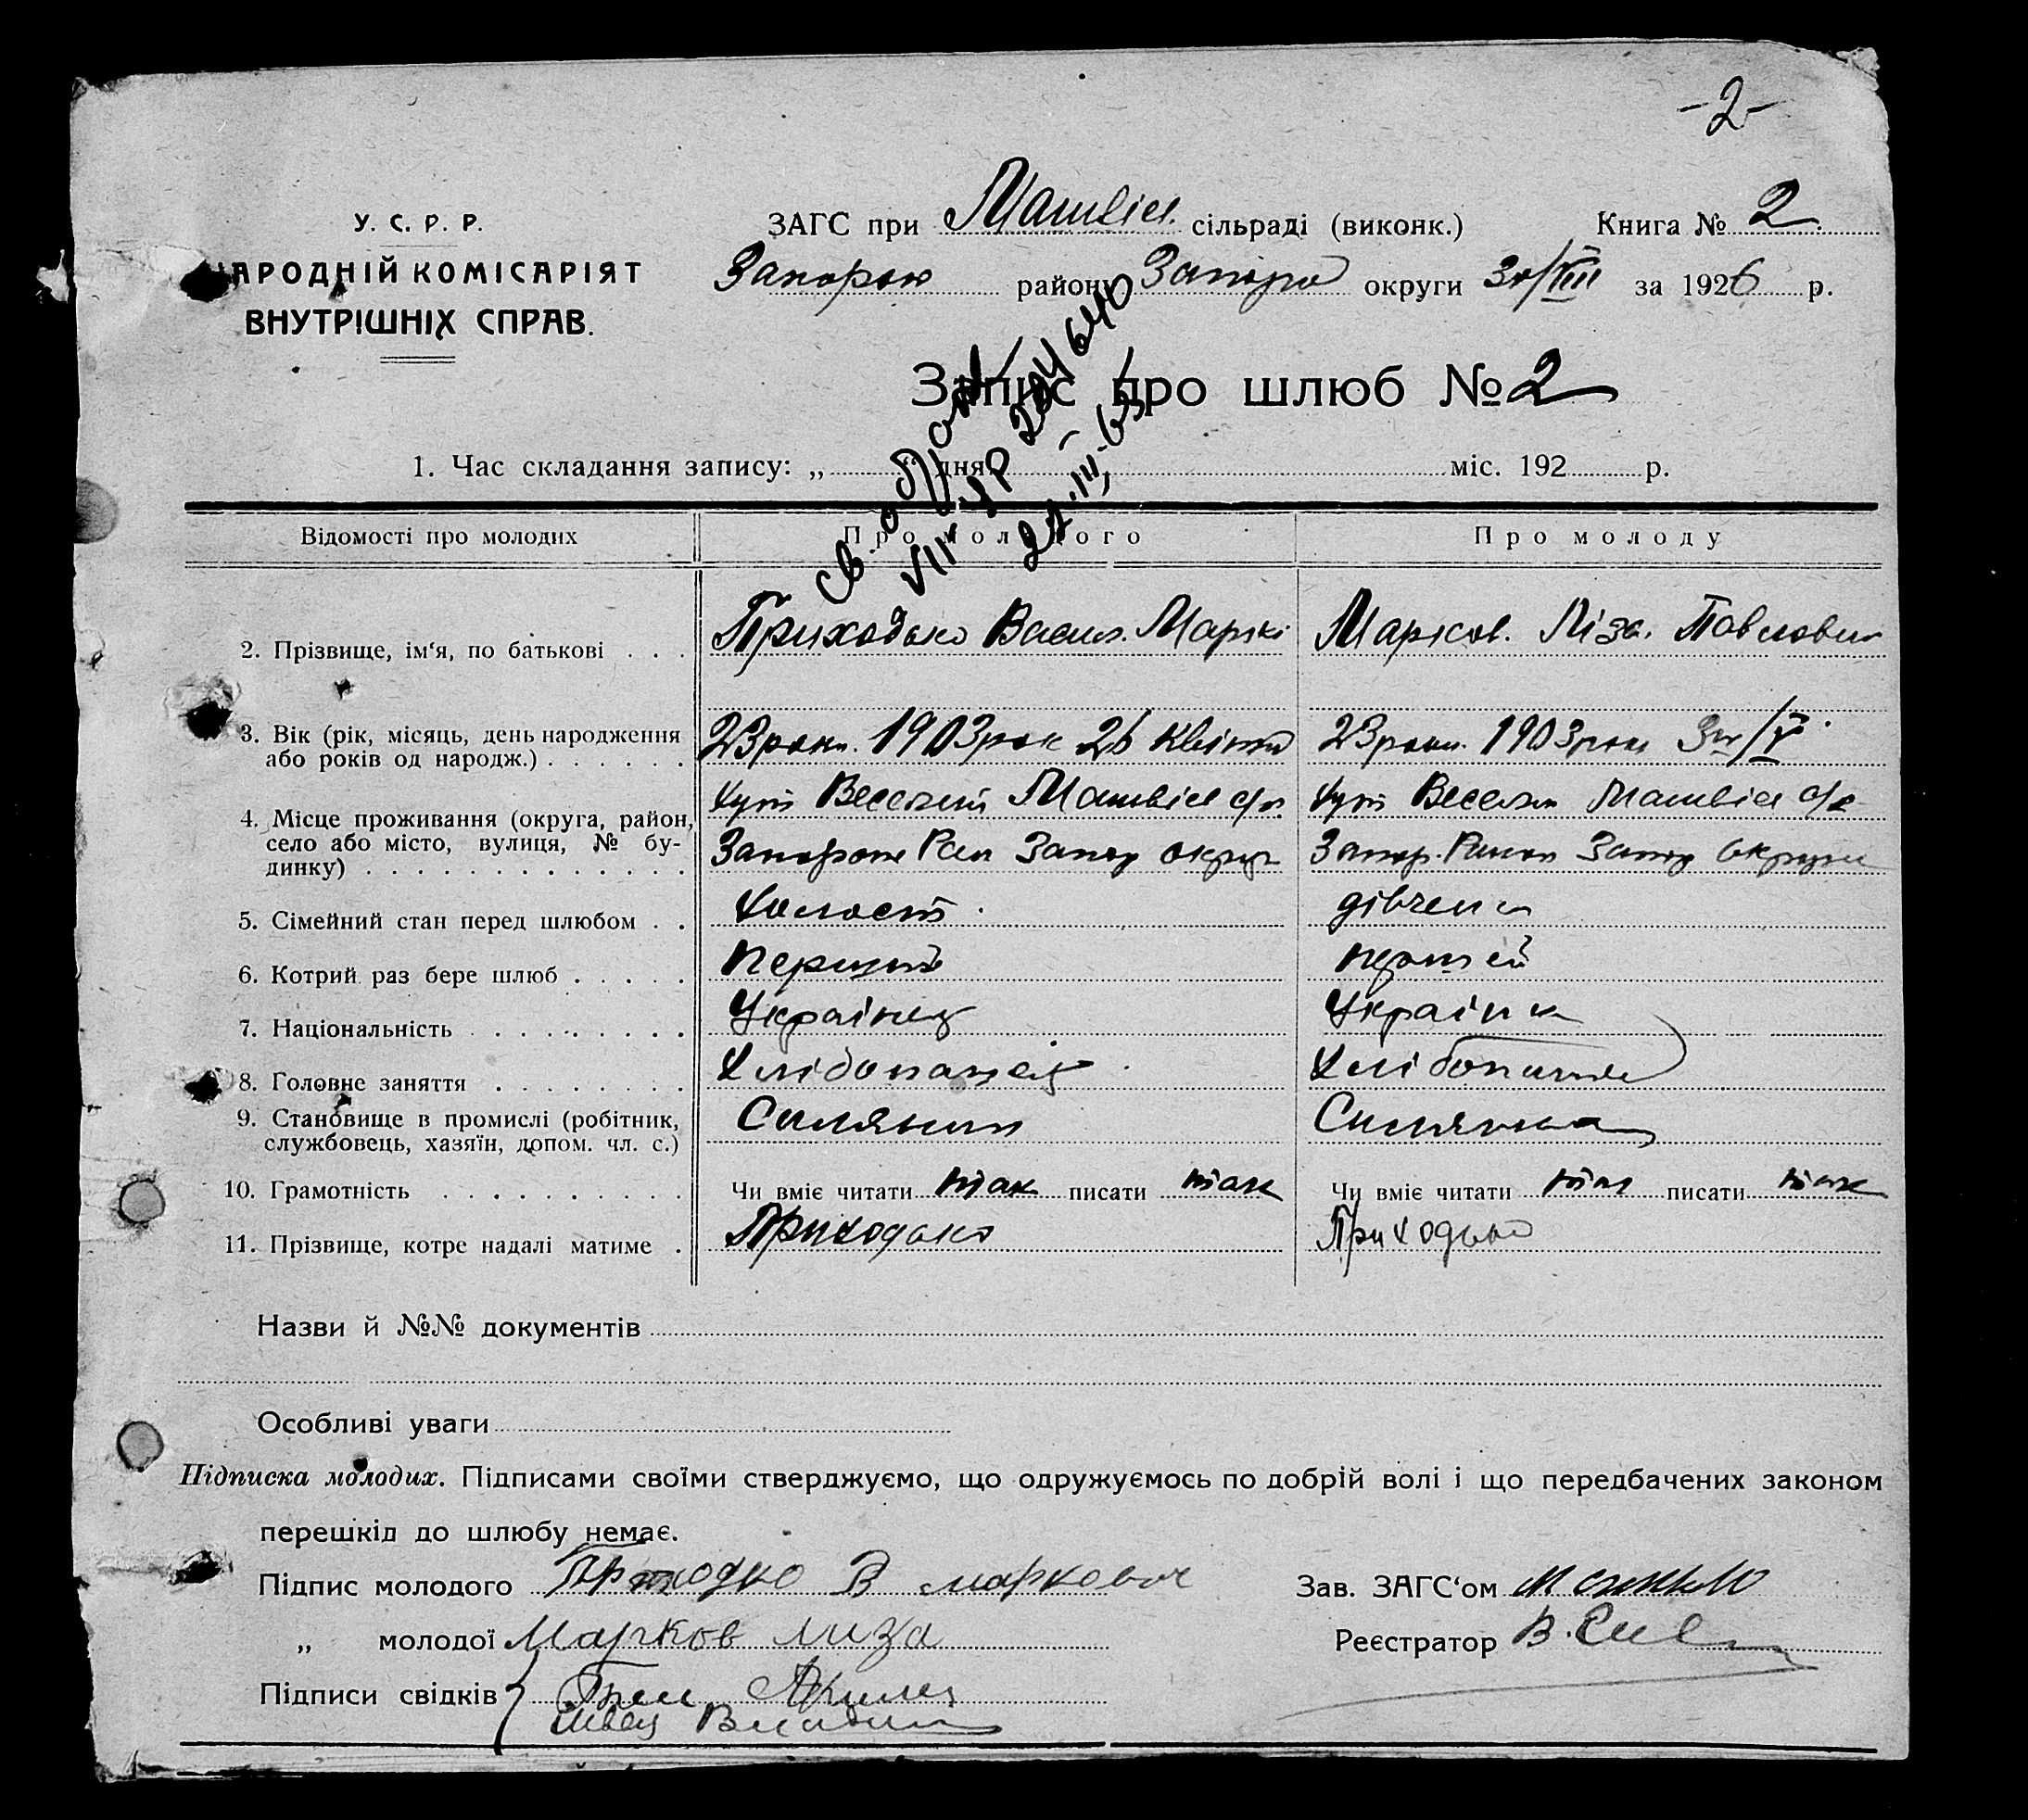 -2-
У. С. Р. Р.
НАРОДНІЙ КОМІСАРІЯТ
ВНУТРІШНІХ СПРАВ.
ЗАГС при Матвіїв. сільраді (виконк.) Книга № 2
Запорож району Запоріз округи /VIII за 1926 р.
Запис про шлюб № 2
1. Час складання запису: „ “ дня міс. 192 р.
Відомості про молодих
Про молодого
Про молоду
2. Прізвище, ім‘я, по батькові . . .
Приходько Васил. Маркі
Марков. Ліза. Павловн
3. Вік (рік, місяць, день народження
або років од народж.) . . . . . .
23 роки. 1903 рок 26 квітня
23 роки. 1903 рок /V
4. Місце проживання (округа, район,
село або місто, вулиця, № бу-
динку) . . . . . . . . . . . . .
хут Веселий Матвіїв с/р.
Запорож Рай Запор округ
хут Веселий Матвіїв с/р
Запор. Район Запор округи
5. Сімейний стан перед шлюбом . .
холост.
дівчена
6. Котрий раз бере шлюб . . . . .
перший
перший
7. Національність . . . . . . . .
Українец
Українка
8. Головне заняття . . . . . . . .
Хлібопашец
Хлібопаш
9. Становище в промислі (робітник,
службовець, хазяїн, допом. чл. с.)
Силянин
Силянка
10. Грамотність . . . . . . . . . .
Чи вміє читати так писати так
Чи вміє читати так писати так
11. Прізвище, котре надалі матиме .
Приходько
Приходько
Назви й №№ документів
Особливі уваги
Підписка молодих. Підписами своїми стверджуємо, що одружуємось по добрій волі і що передбачених законом
перешкід до шлюбу немає.
Підпис молодого Приходко В Маркович
Зав. ЗАГС‘ом
„ молодої Марков Лиза
Реєстратор В.
Підписи свідків
Швец